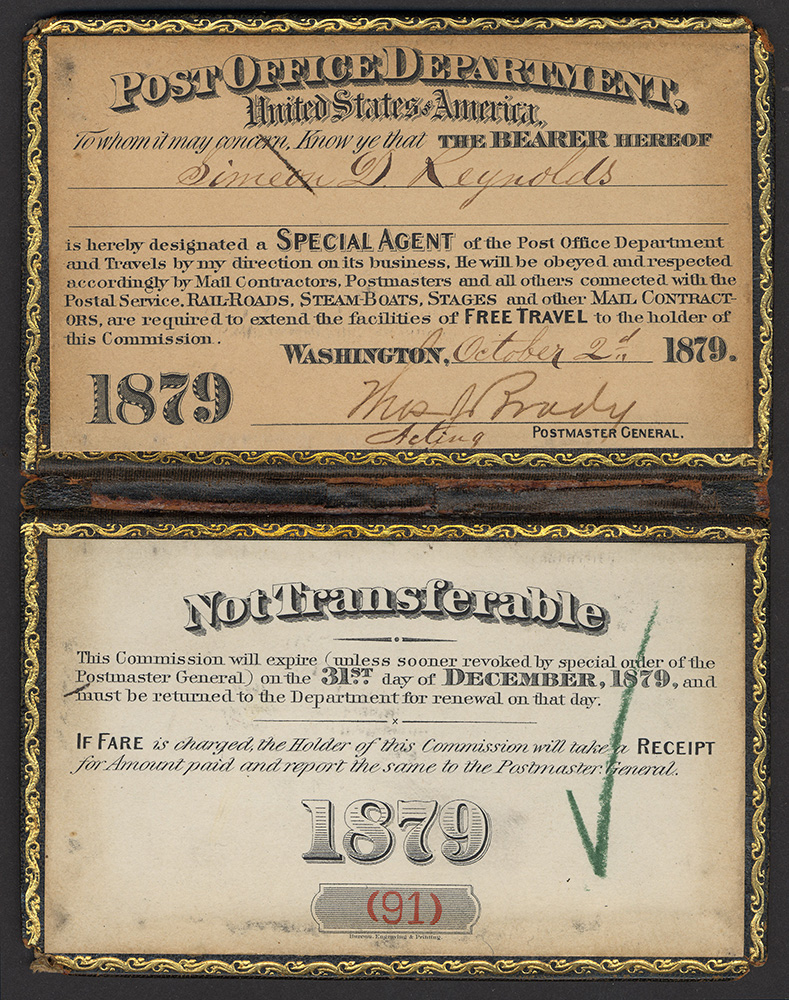 POST OFFICE DEPARTMENT.
United States of America,
To whom it may concern, Know ye that THE BEARER HEREOF
Simeon D. Reynolds
is hereby designated a SPECIAL AGENT of the Post Office Department
and Travels by my direction on its business. He will be obeyed and respected
accordingly by Mail Contractors, Postmasters and all others connected with the
Postal Service. RAIL-ROADS, STEAM-BOATS, STAGES and other MAIL CONTRACT-
ORS, are required to extend the facilities of FREE TRAVEL to the holder of
this Commission.
WASHINGTON, October 2d 1879.
1879
Thos J Brady
Acting POSTMASTER GENERAL.
Not Transferable
This Commission will expire (unless sooner revoked by special order of the
Postmaster General) on the 31ST day of DECEMBER, 1879, and
must be returned to the Department for renewal on that day.
IF FARE is charged, the Holder of this Commission will take a RECEIPT
for Amount paid and report the same to the Postmaster General.
1879
(91)
Bureau, Engraving & Printing.